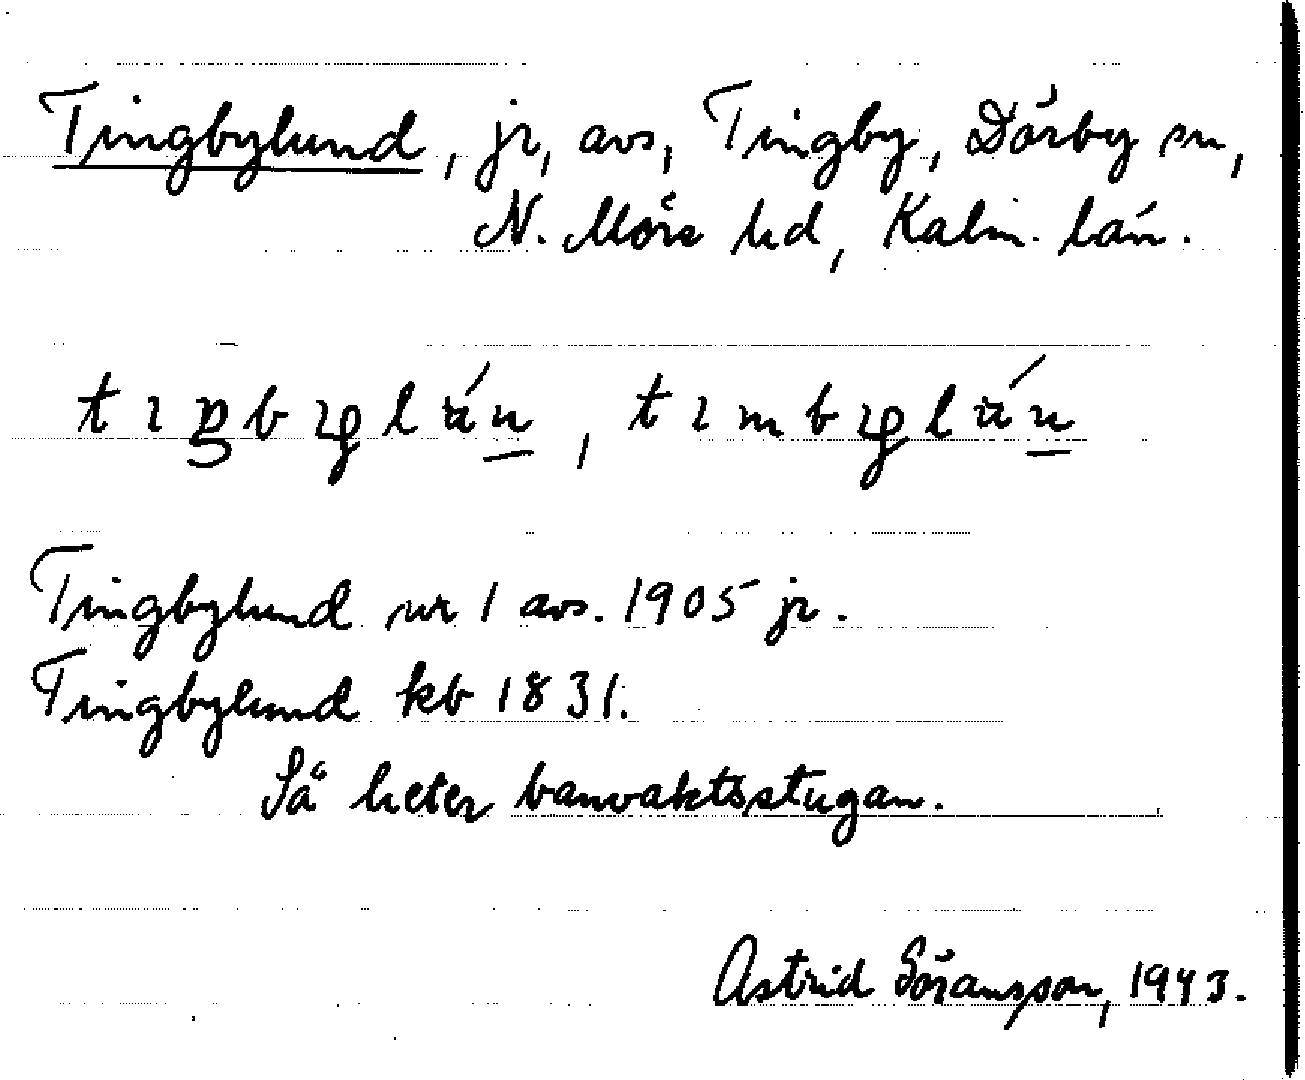 Tingbylund, jr, avs, Tingby, Dörby sn,
N. Möre hd, Kalm. län.
Tingbylund nr 1 avs. 1905 jr.
Tingbylund kb 1831.
Så heter banvaktsstugan.
Astrid Göransson, 1943.